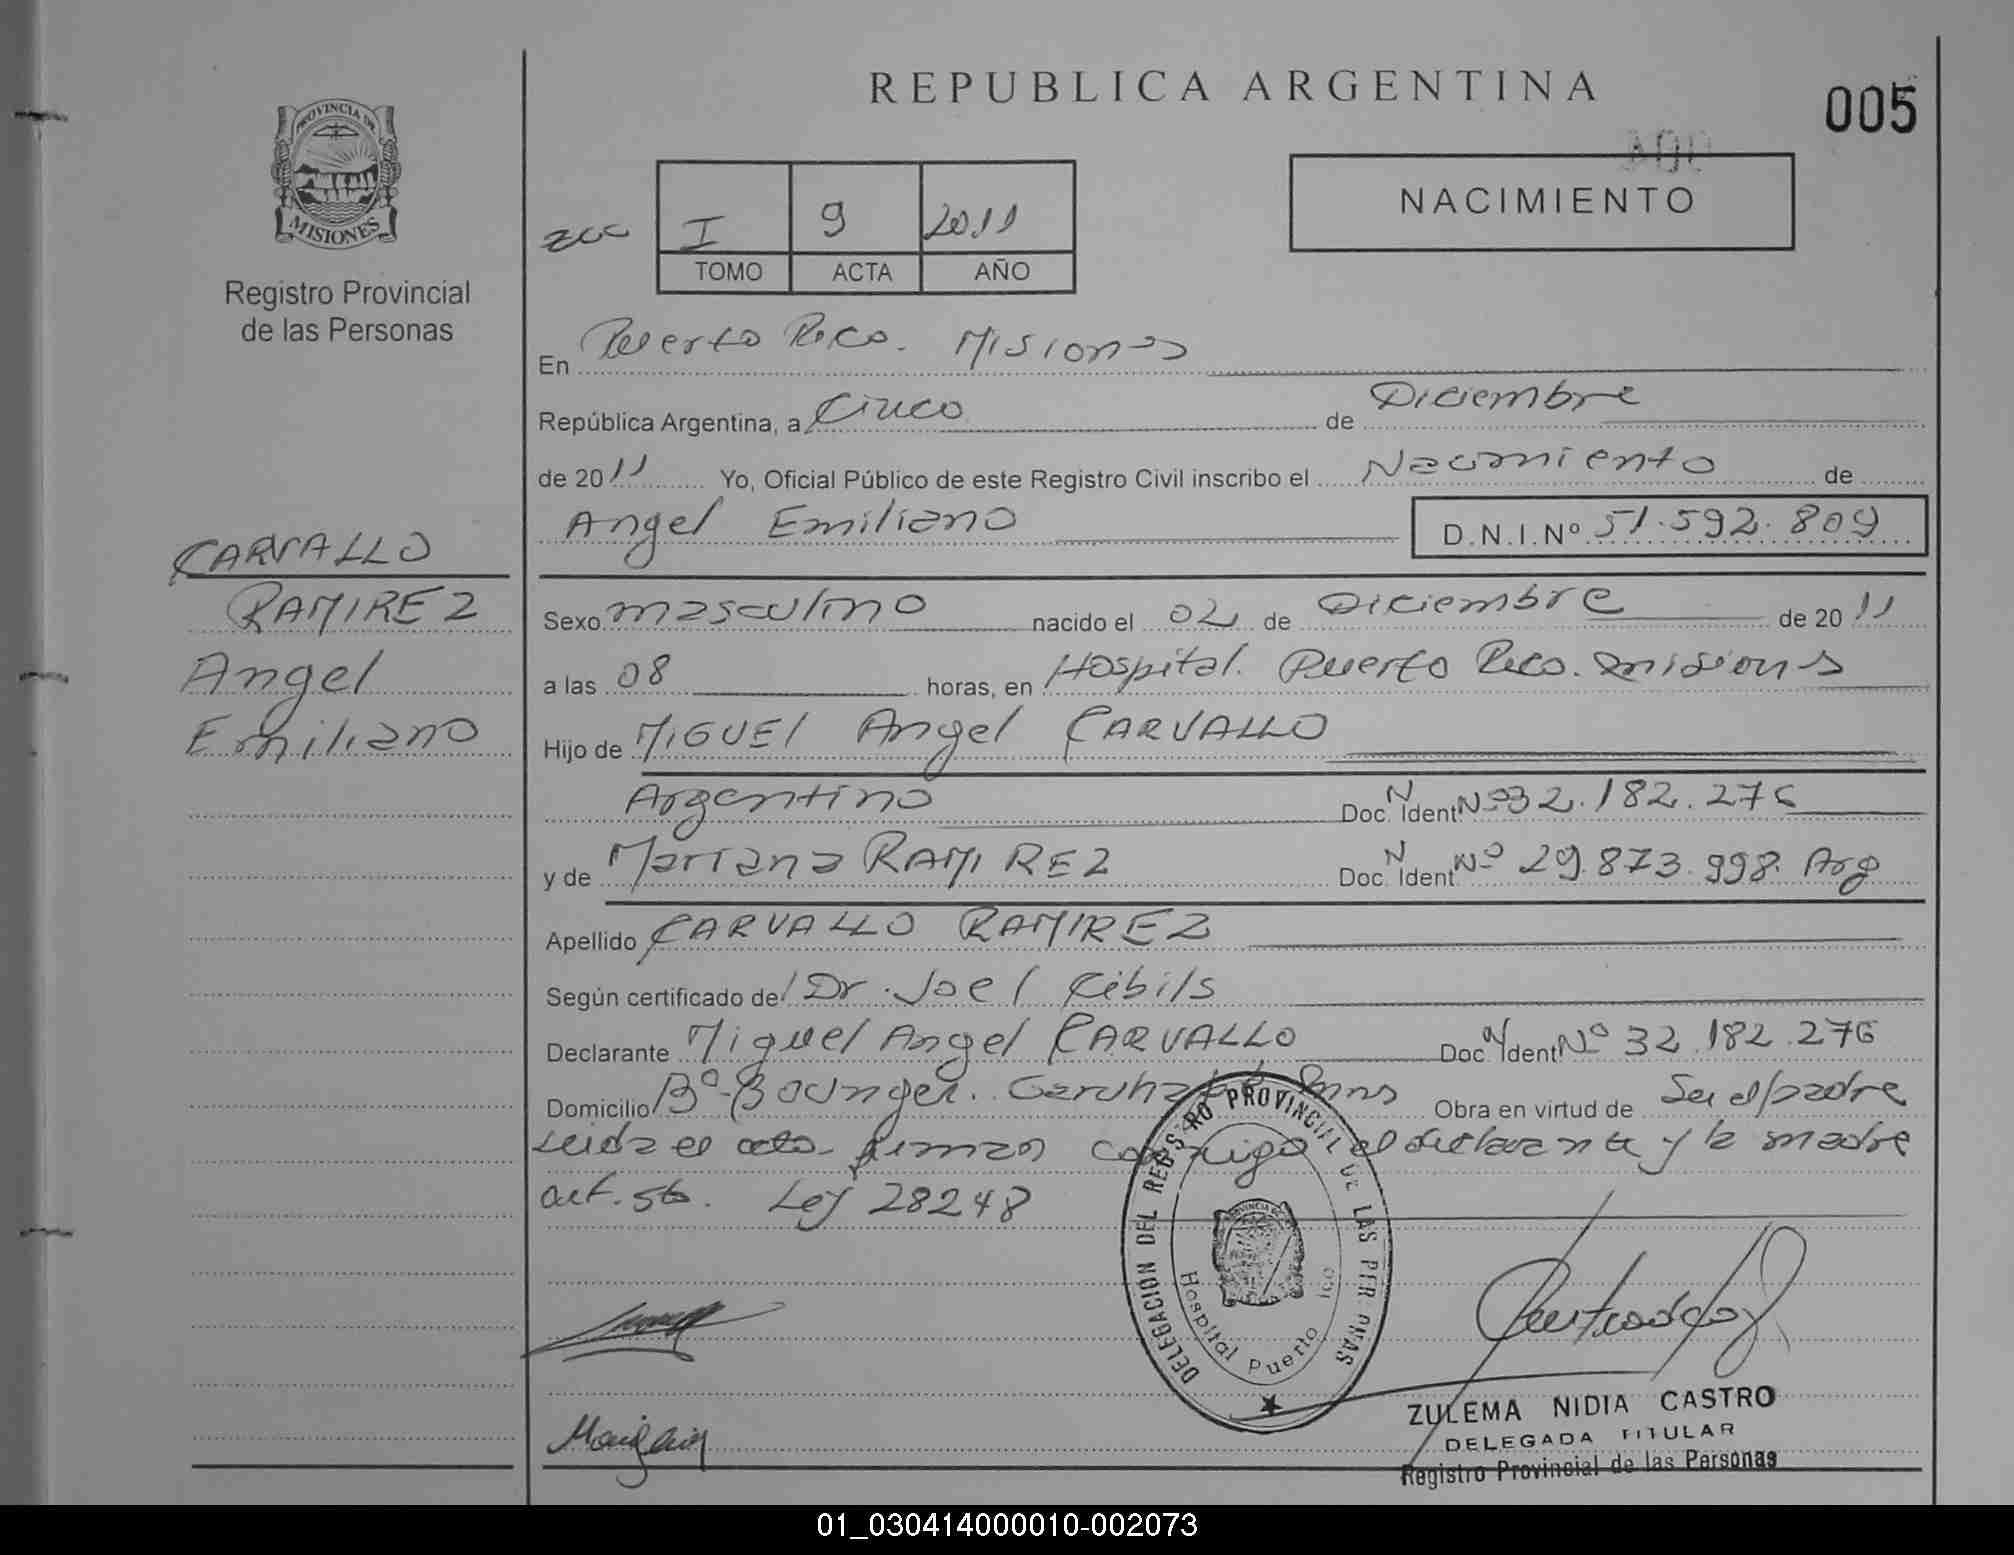 REPUBLICA ARGENTINA
005
PROVINCIA DE
MISIONES
Registro Provincial
de las Personas
NACIMIENTO
I 9 2011
TOMO ACTA AÑO
En Puerto Rico. Misiones
República Argentina, a Cinco de Diciembre
de 2011 Yo, Oficial Público de este Registro Civil inscribo el Nacimiento de
Angel Emiliano D.N.I.Nº 51.592.809
CARVALLO
RAMIREZ
Angel
Emiliano
Sexo masculino nacido el 02 de Diciembre de 2011
a las 08 horas, en Hospital. Puerto Rico. misiones
Hijo de MIGUEl Angel CARVALLO
Argentino Doc. N Ident Nº 32.182.276
y de Mariana RAMIREZ Doc. N Ident Nº 29.873.998. Arg
Apellido CARVALLO RAMIREZ
Según certificado de Dr. Joel Cibils
Declarante Miguel Angel CARVALLO Doc. N Ident Nº 32.182.276
Domicilio Bº Garuhapé Mns Obra en virtud de Ser el padre
Leida el acta firman conmigo el declarante y la madre
art. 56. Ley 28248
DELEGACION DEL REGISTRO PROVINCIAL DE LAS PERSONAS
Hospital Puerto ico
ZULEMA NIDIA CASTRO
DELEGADA TITULAR
Registro Provincial de las Personas
01_030414000010-002073